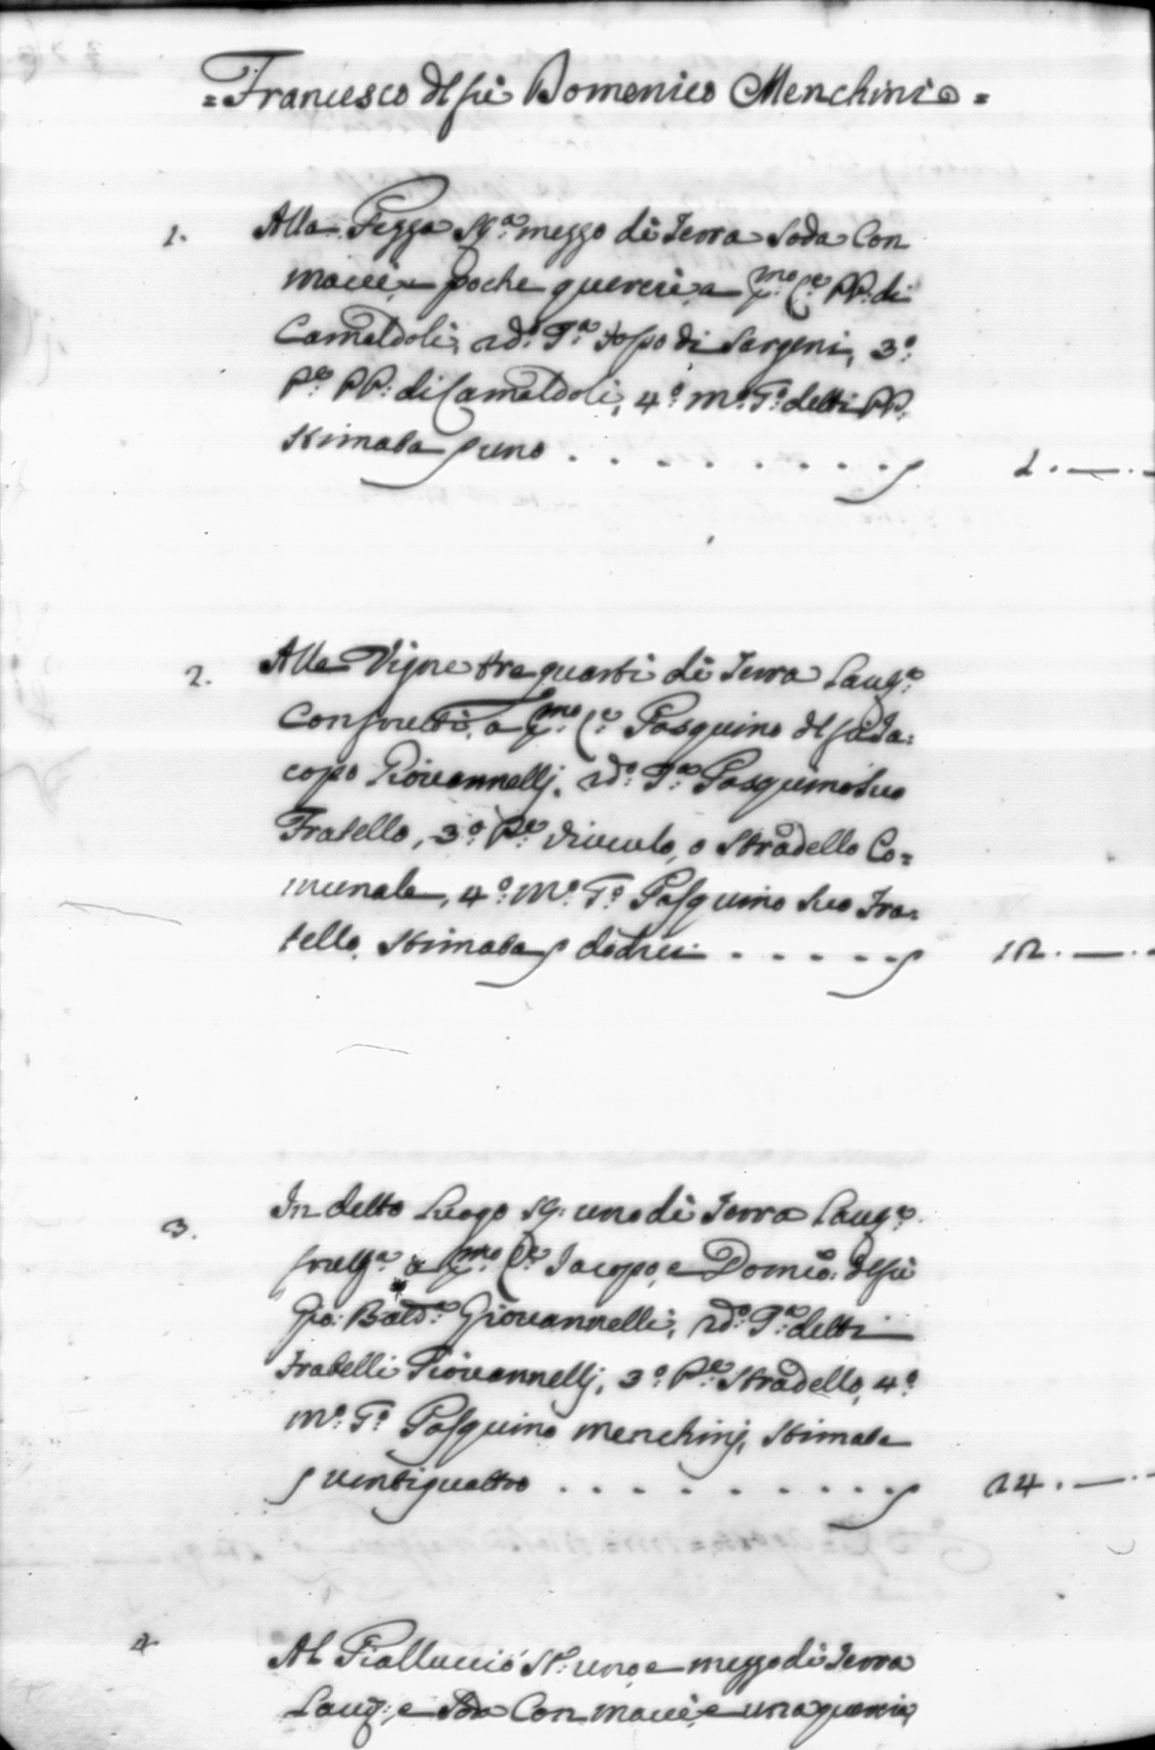 = Francesco del fù Domenico Menchini =
1. Alla Pezza St.ª mezzo di Terra Soda Con
macci, e poche quercie, a p.mo C.º PP: di
Camaldoli, 2dº T.ª topo di Sargeni, 3º
P.e PP: di Camaldoli, 4º Mº Tº detti PP.
Stimata s uno . . . . . . . . . s 1. —. —
2. Alle Vigne tre quarti di Terra Lauq.ª
Con frutti, a p.mo C.º Pasquino del fù Ja=
copo Giovannellj, 2dº T.ª Pasquino suo
Fratello, 3º P.e Viocolo, o Stradello Co=
munale, 4º Mº Tº Pasquino suo Fra=
tello, Stimata s dodici . . . . . s 12. —. —
3. In detto Luogo St: uno di Terra Lauq.ª
frutt.ª a p.mo C.º Jacopo, e Domco: del fù
Gio: Batt.ª Giovannelli, 2dº T.ª detti
Fratelli Giovannellj, 3º P.e Stradello, 4º
Mº Tº Pasquino Menchinj, Stimata
s ventiquattro . . . . . . . . s 24. —. —
4. Al Pialluccio St: uno, e mezzo di Terra
Lauq: e Soda Con macci, e una quercia,